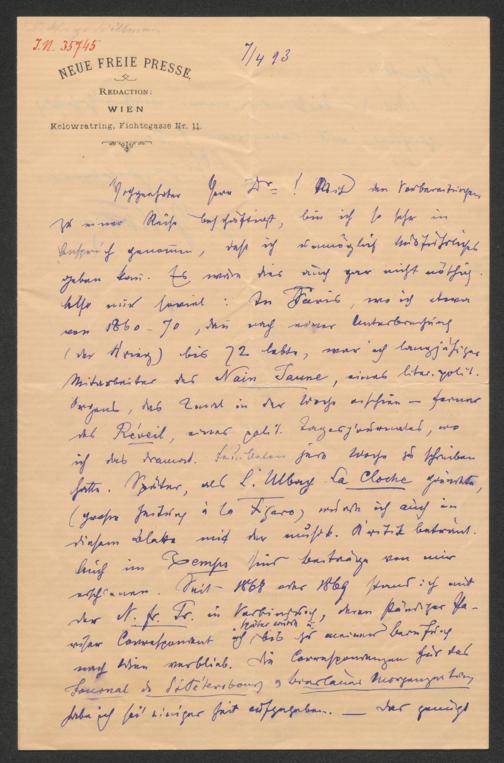 J.N. 35745
7/4 93
NEUE FREIE PRESSE.
REDACTION:
WIEN
Kolowratring, Fichtegasse Nr. 11.
Herr Dr.! Mit den Vorbereitungen
zu einer Reise beschäftigt, bin ich so sehr in
Anspruch genommen, daß ich unmöglich Ausführliches
geben kann. Es wäre dies auch gar nicht nöthig.
Also nur soviel: In Paris, wo ich etwa
von 1860-70, dann nach einer Unterbrechung
(der Krieg) bis 72 lebte, war ich langjähriger
Mitarbeiter des Nain Jaune, eines liter. polit.
Organs, das 2mal in der Woche erschien – ferner
des Réveil, eines polit. Tagesjournales, wo
ich das dramat. Feuilleton jede Woche zu schreiben
hatte. Später, als L. Ulbach La Cloche gründete,
(große Zeitung à la Figaro) wurde ich auch in
diesem Blatte mit der musik. Kritik betraut.
Auch im Temps sind Beiträge von mir
erschienen. Seit 1868 oder 1869 stand ich mit
der N. fr. Pr. in Verbindung, deren ständiger Pa-
riser Correspondent ich später wurde u. bis zu meiner Berufung
nach Wien verblieb. Die Correspondenzen für das
Journal de St Pétersbourg u Breslauer Morgenzeitung
habe ich seit einiger Zeit aufgegeben. — Das genügt